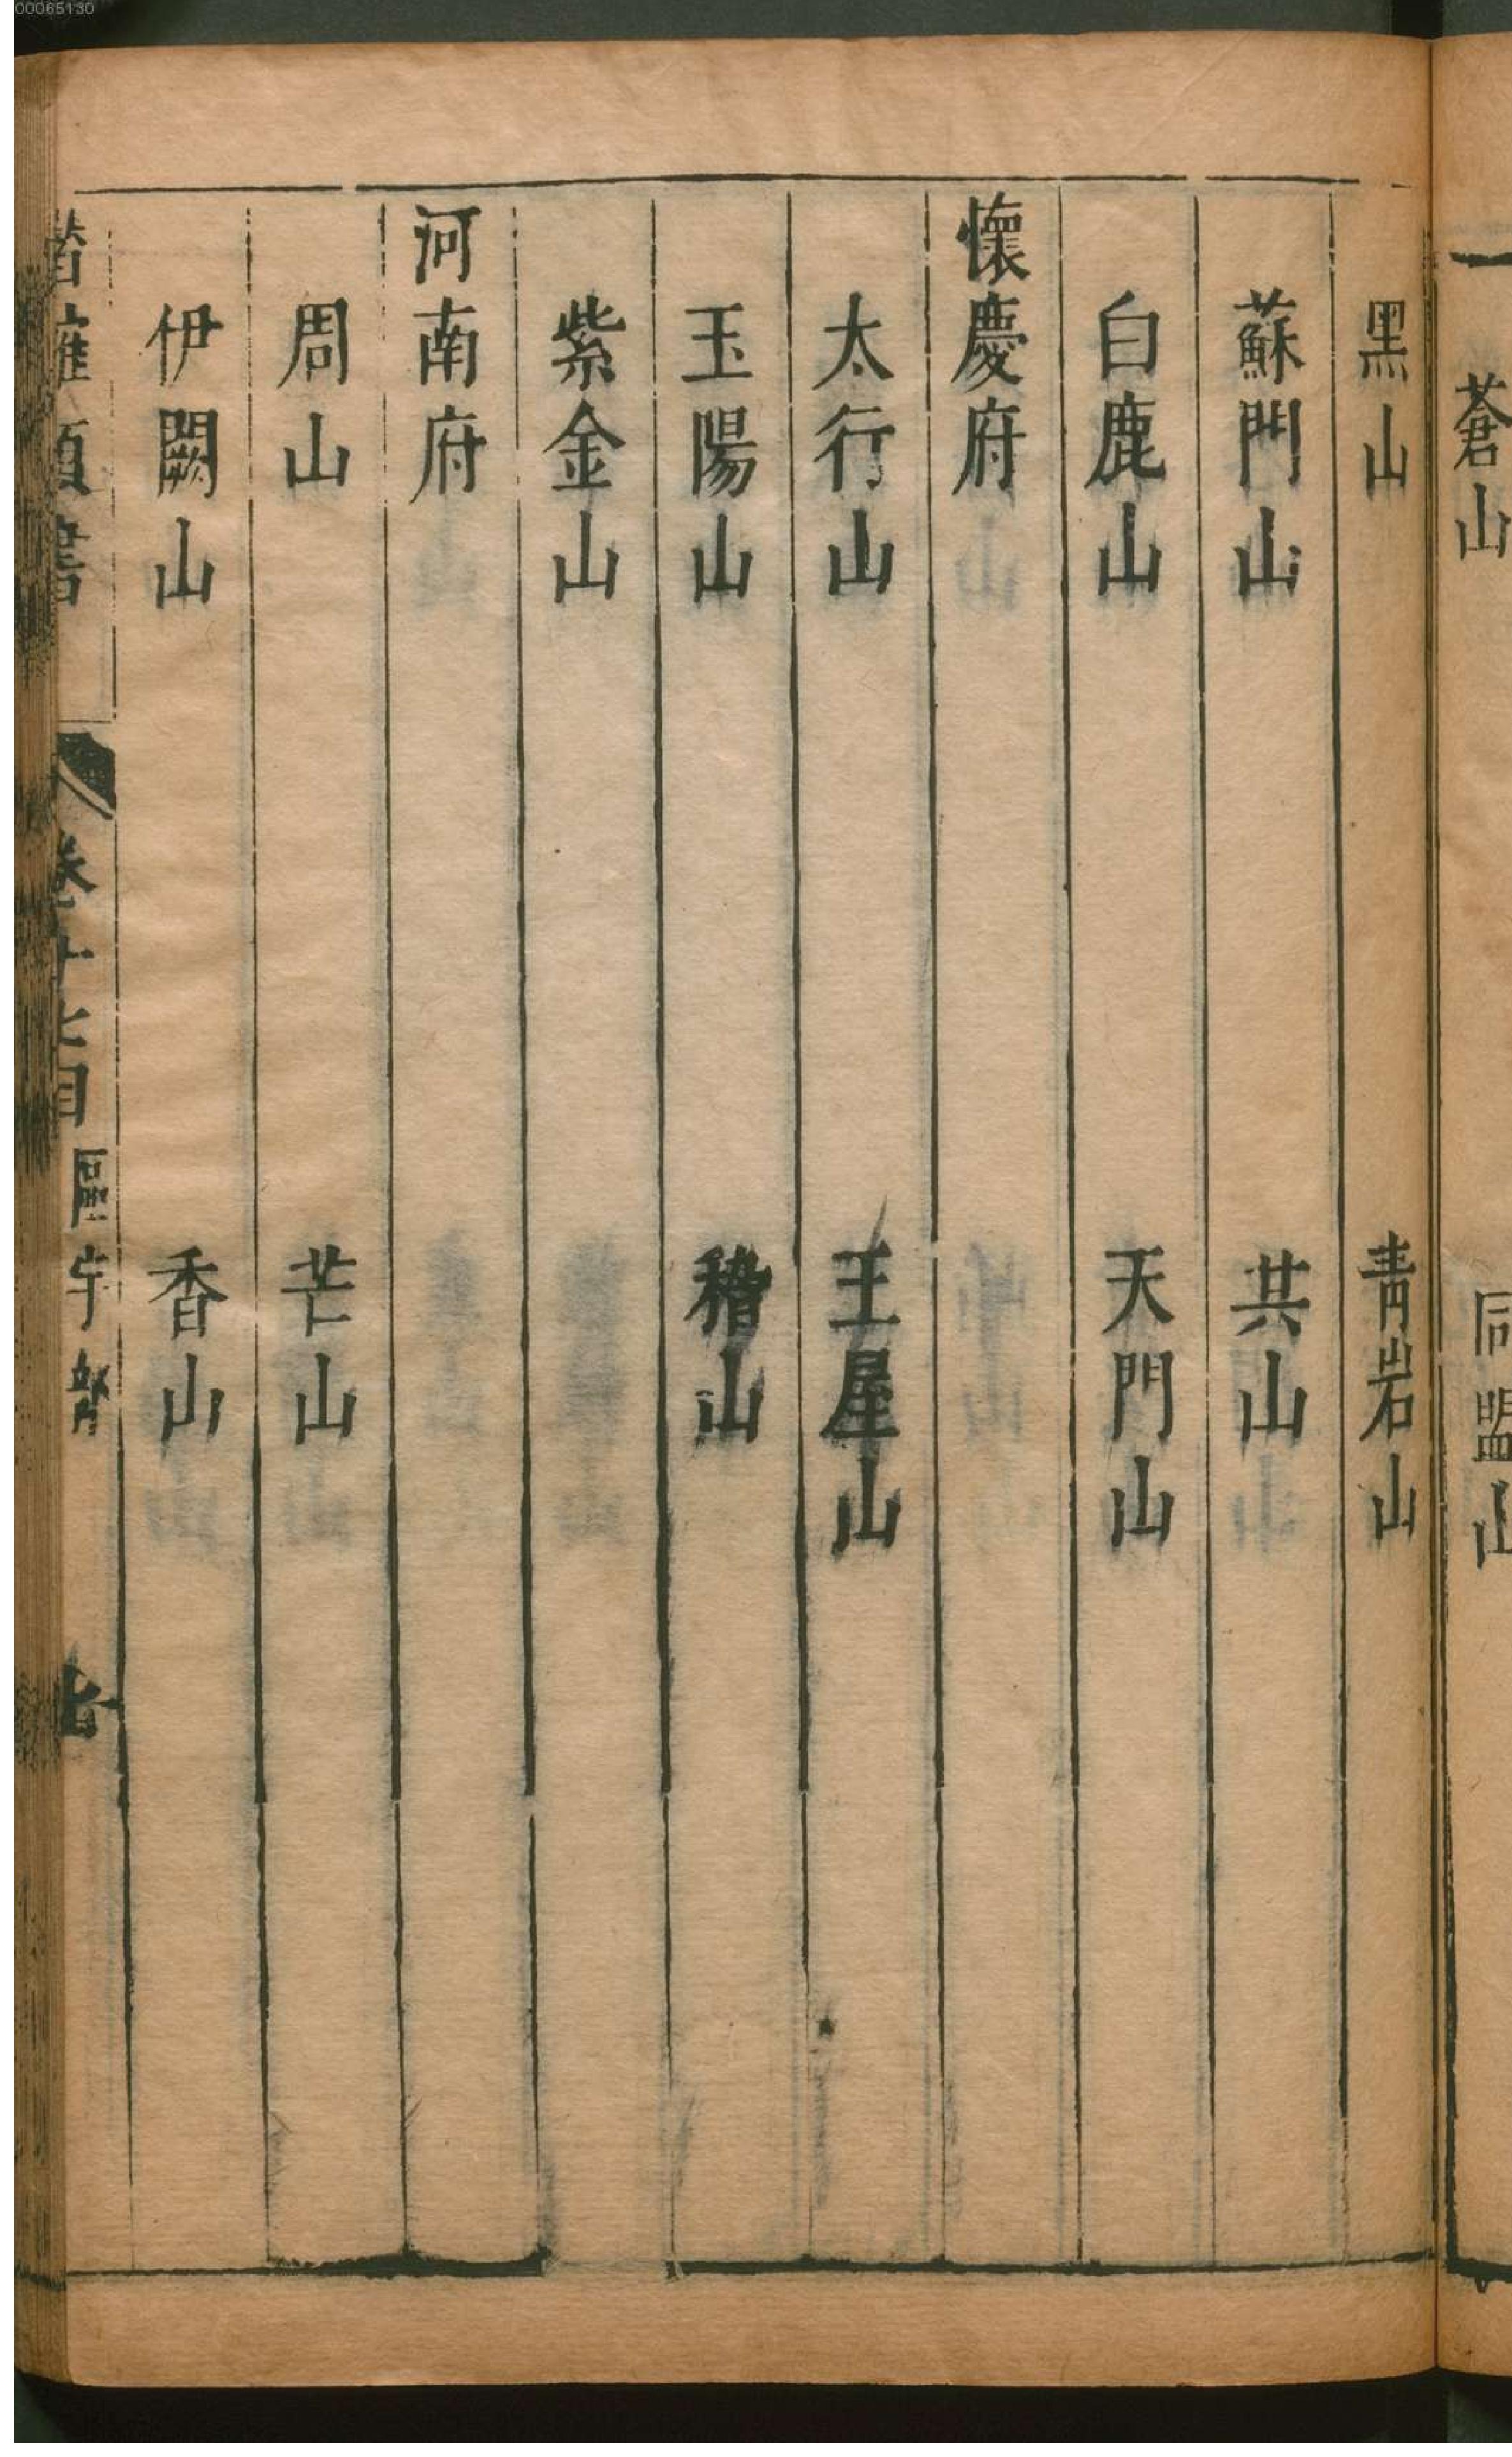 蒼山　同盟山
黑山　青岩山
蘇門山　共山
白鹿山　天門山
懷慶府
太行山　王屋山
玉陽山　稽山
紫金山
河南府
周山　芒山
伊闕山　香山
類書　卷十七目　區宇部
00065130